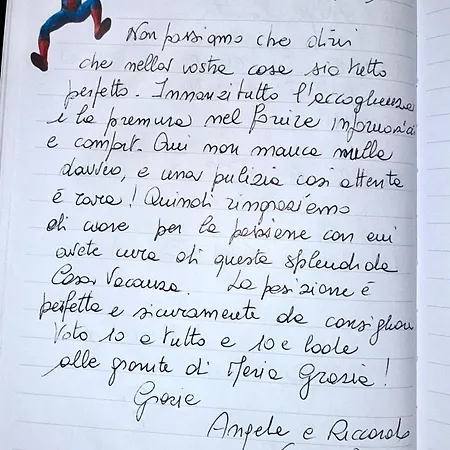 Non possiamo che dirvi
che nella vostra casa sia tutto
perfetto. Innanzitutto l'accoglienza
e la premura nel fornire informazioni
e comfort. Qui non manca nulla
davvero, e una pulizia così attenta
è rara! Quindi ringraziamo
di cuore per la passione con cui
avete cura di questa splendida
Casa Vacanza. La posizione è
perfetta e sicuramente da consigliare
Voto 10 a tutto e 10 e lode
alle granite di Maria Grazia!
Grazie
Angela e Riccardo